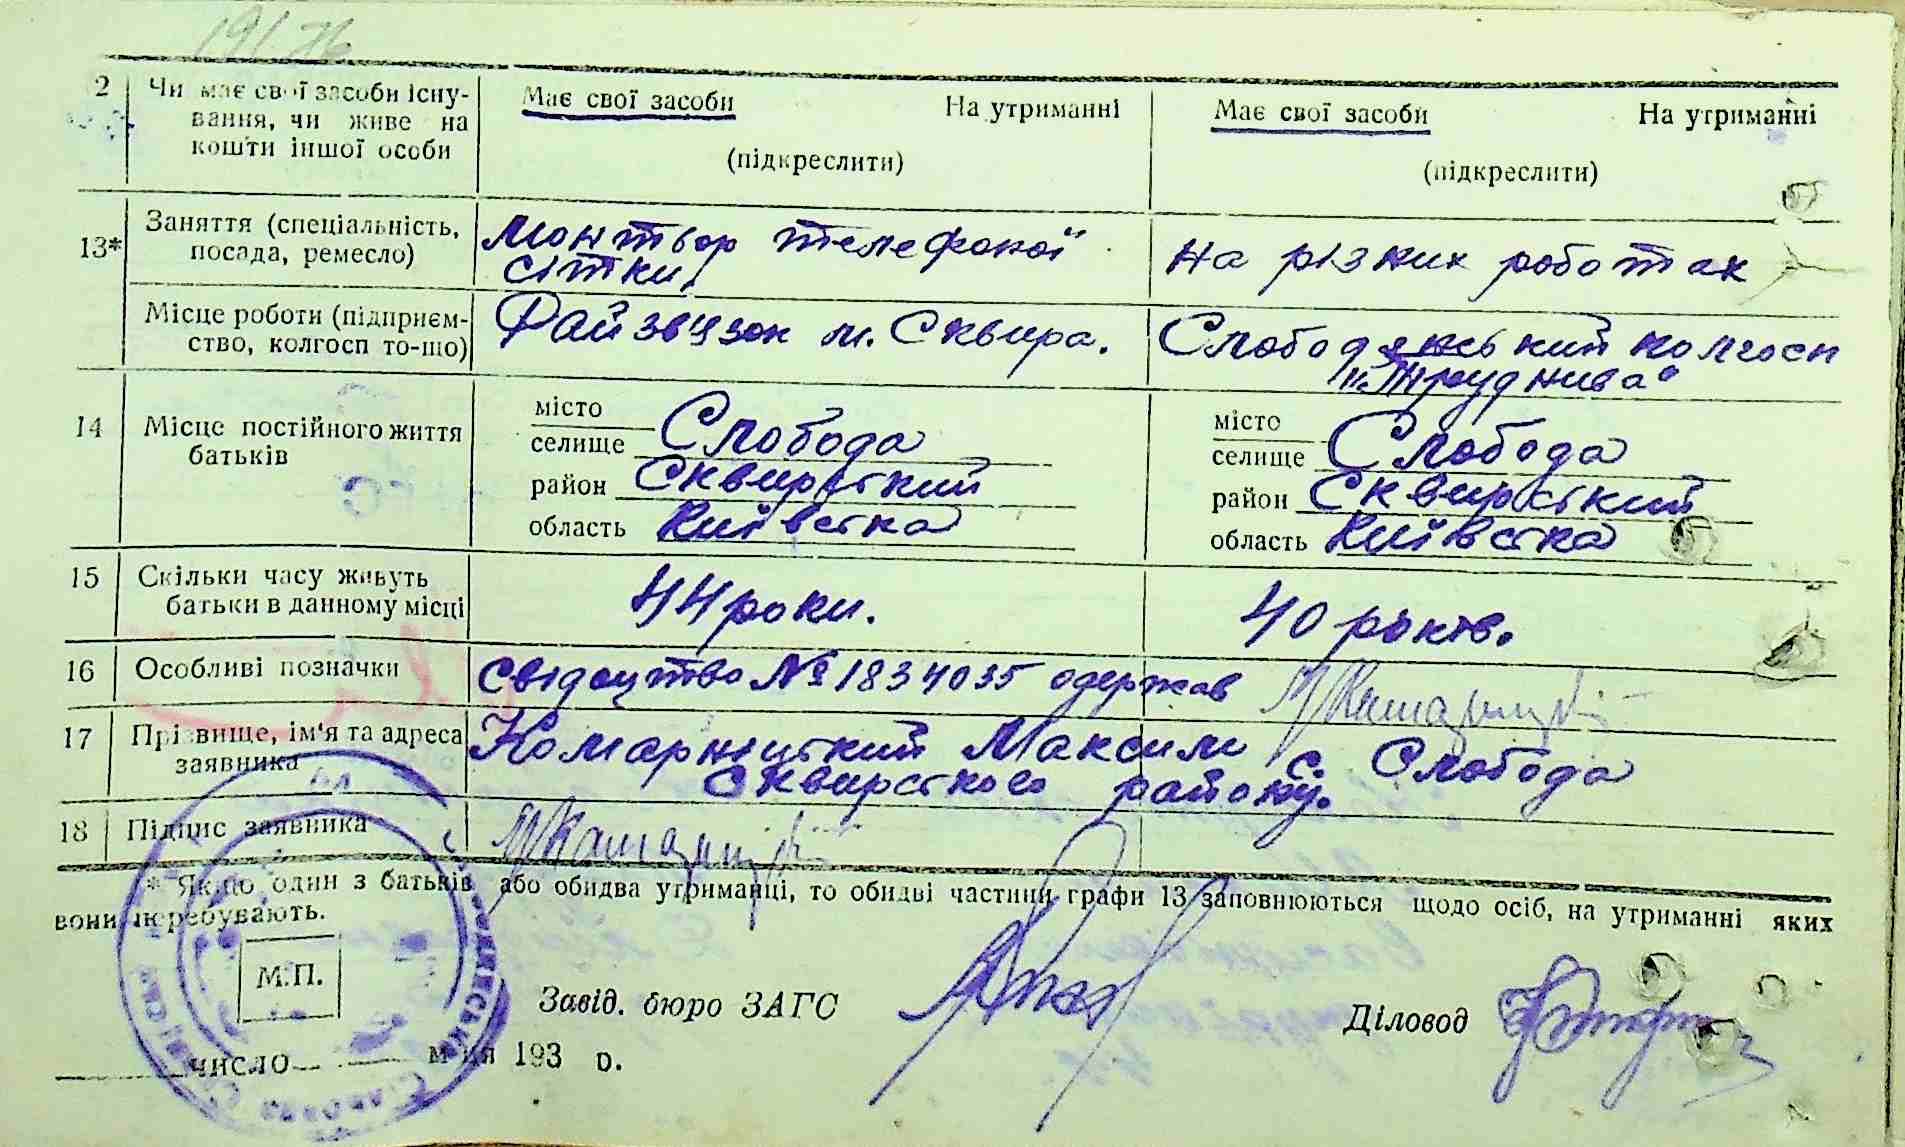 2 Чи має свої засоби існу-
вання, чи живе на
кошти іншої особи
Має свої засоби На утриманні
(підкреслити)
Має свої засоби На утриманні
(підкреслити)
13* Заняття (спеціальність,
посада, ремесло)
Монтьор телефоної
сітки
на різних роботах
Місце роботи (підприєм-
ство, колгосп то-що)
Райзвязок м. Сквира.
Слободянський колгосп
"Труднива"
14 Місце постійного життя
батьків
місто
селище Слобода
район Сквирський
область Київська
місто
селище Слобода
район Сквирський
область Київська
15 Скільки часу живуть
батьки в данному місці
44 роки.
40 років.
16 Особливі позначки
свідоцтво № 1834035 одержав
17 Прізвище, ім'я та адреса
заявника
Комарніцький Максим с. Слобода
Сквирського району.
18 Підпис заявника
* Якщо один з батьків або обидва утриманці, то обидві частини графи 13 заповнюються щодо осіб, на утриманні яких
вони перебувають.
М.П.
Завід. бюро ЗАГС
Діловод
число м-ця 193 р.